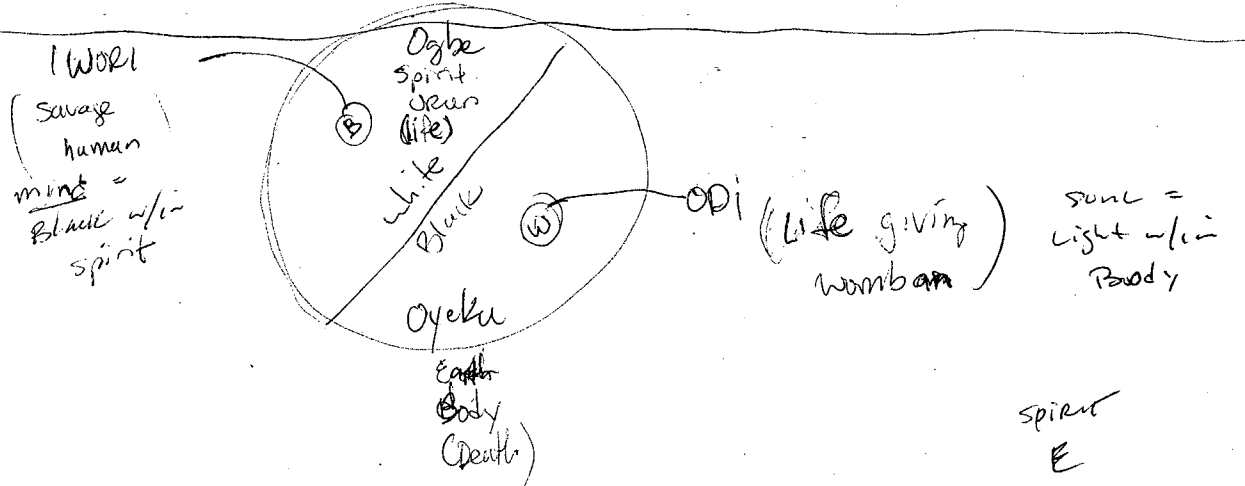 IWORI
(Savage
human
mind =
Black w/in
spirit
B
Ogbe
spirit
orun
(life)
white
Black
W
Oyeku
Earth
Body
(Death)
ODi
(Life giving
womban)
soul =
Light w/in
Body
spirit
E